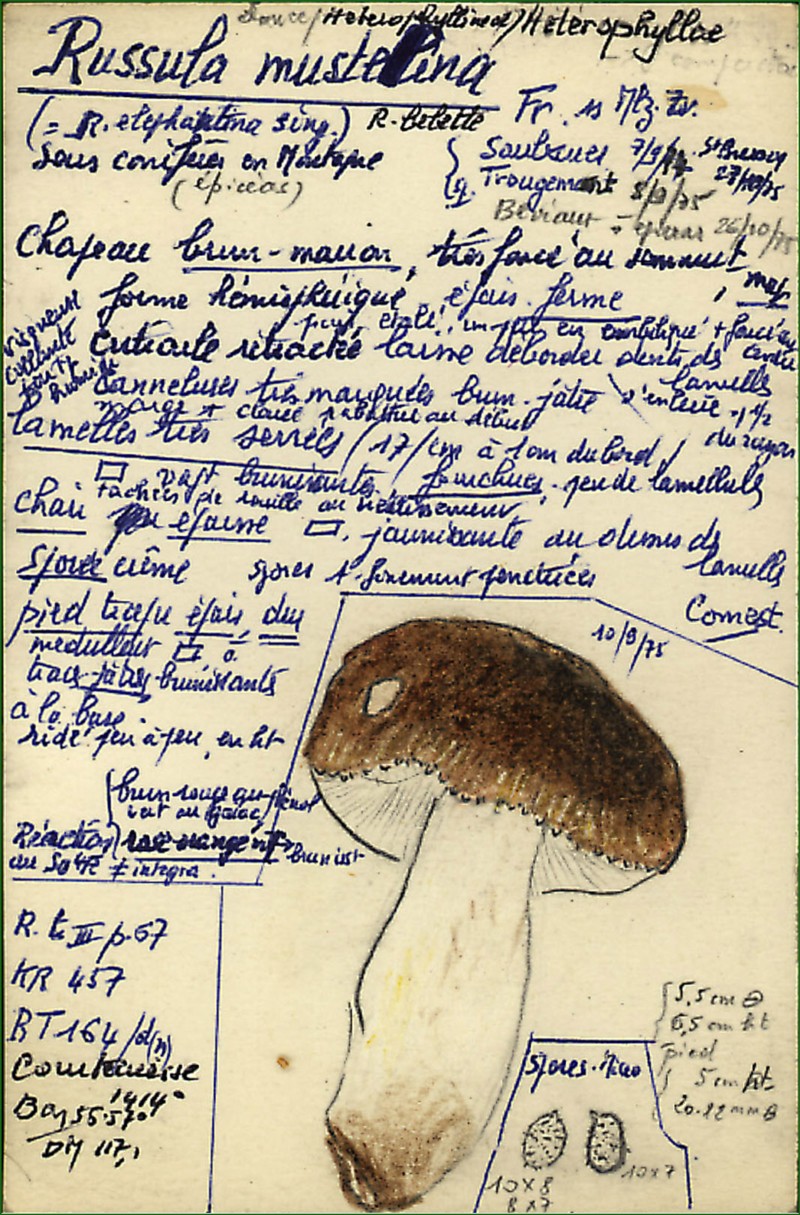 Douce / Heterophyllinae / Hétérophyllae
Russula mustelina
(= R. elephantina sing.) R. belette Fr. ss Mlz. Zv.
Sous conifères en Montagne
(épicéas)
Saulxures 7/9/74 St Bresson 27/10/75
q. Trougemont 8/9/75
épicéas 26/10/75
Chapeau brun-marron, très foncé au sommet, mat
forme hémisphérique, épais. ferme
puis étalé, un peu en + foncé au centre
visqueuse
cuticule rétractée laisse déborder dents des lamelles
cannelures très marquées brun-jâtre s'enlève 1/2 du rayon
marge + claire rabattue au début
lamelles très serrées (17/cm à 1cm du bord)
□ brunissantes, fourchues. peu de lamellules
tachées de rouille au vieillissement
chair épaisse □. jaunissante au dessus des lamelles
Spore crème spores + finement ponctuées
Comest.
pied trapu épais, dur
10/9/75
médulleux □
brunissants
à la base.
ridé peu à peu, en ht
Réaction brun rouge au phénol
vert au gaïac
rose orangé vif brunist
au SO4Fe ≠ integra.
R. t. III p. 67
KR 457
RT 164 /d(n)
1414°
DM 117,1
5,5 cm ⌀
6,5 cm ht
pied
5 cm ht
20.22 mm ⌀
Spores. Micro
10x8
8x7
10x7